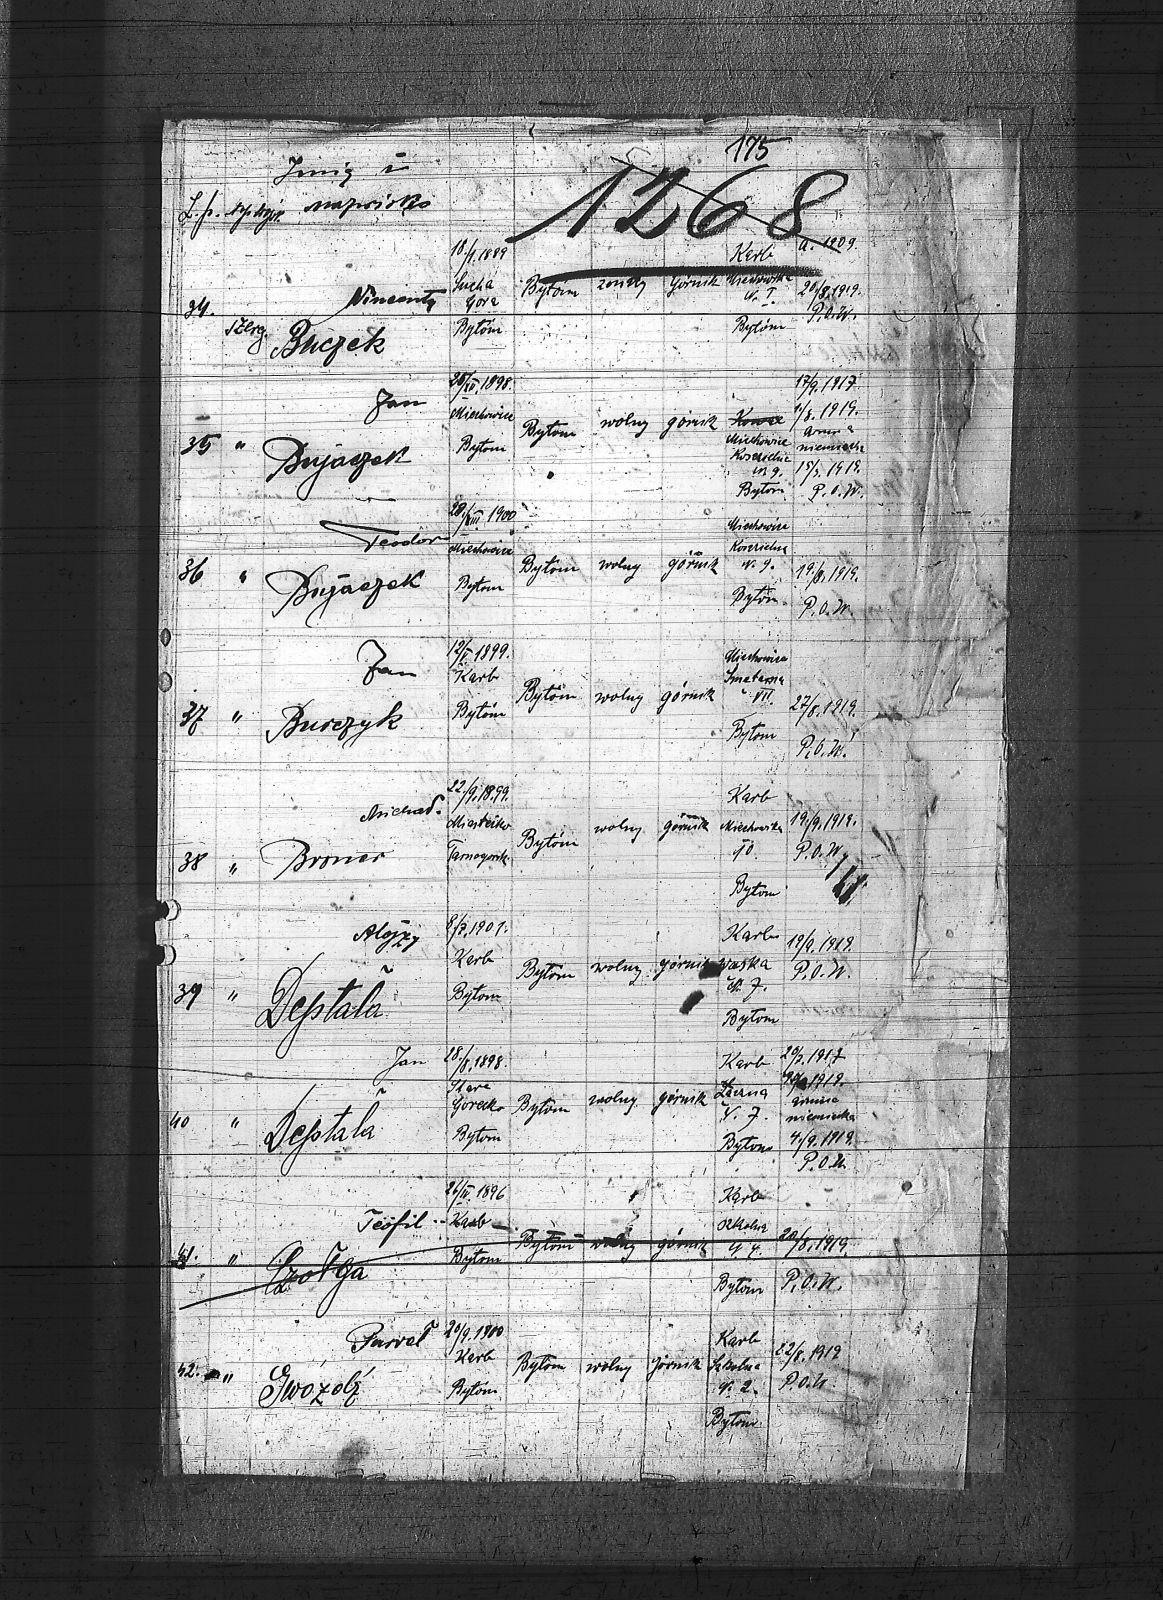 175
1268
Imię i
L.p. nazwisko
34. Szereg. Wincenty Buczek
18/1.1899 Sucha Góra Bytom
Bytom żonaty górnik
Karb
Bytom
a. 1909.
20/8.1919. P.O.W.
35 " Jan Bujaczek
1898. Miechowice Bytom
Bytom wolny górnik
Miechowice
n 9. Bytom
17/9.1917.
1/8.1919.
niemiecka
15/3.1919. P.O.W.
36 " Teodor Bujaczek
28/VIII 1900 Miechowice Bytom
Bytom wolny górnik
Miechowice
N. 9.
Bytom.
19/8.1919.
P.O.W.
37 " Jan Burczyk
12/V.1899. Karb Bytom
Bytom wolny górnik
Miechowice
VII.
Bytom
27/8.1919.
P.O.W.
38 " Broner
22/9.18.99. Miasteczko
Bytom wolny górnik
Karb
Bytom
19/9.1919.
P.O.W.
39 " Alojzy Deptała
1901. Karb Bytom
Bytom wolny górnik
Karb
N. 7.
Bytom
19/9.1919.
P.O.W.
40 " Jan Deptała
28/8.1898. Bytom
Bytom wolny górnik
Karb
N. 7.
Bytom
1917
1919.
niemiecka
4/9.1919.
P.O.W.
41. " Teofil
26/IV.1896 Karb Bytom
Bytom wolny górnik
Karb
Szkolna
Bytom
20/8.1919.
P.O.W.
42. " Paweł Gwóźdź
20/9.1900 Karb Bytom
Bytom wolny górnik
Karb
Szkolna
N. 2.
Bytom
22/8.1919
P.O.W.